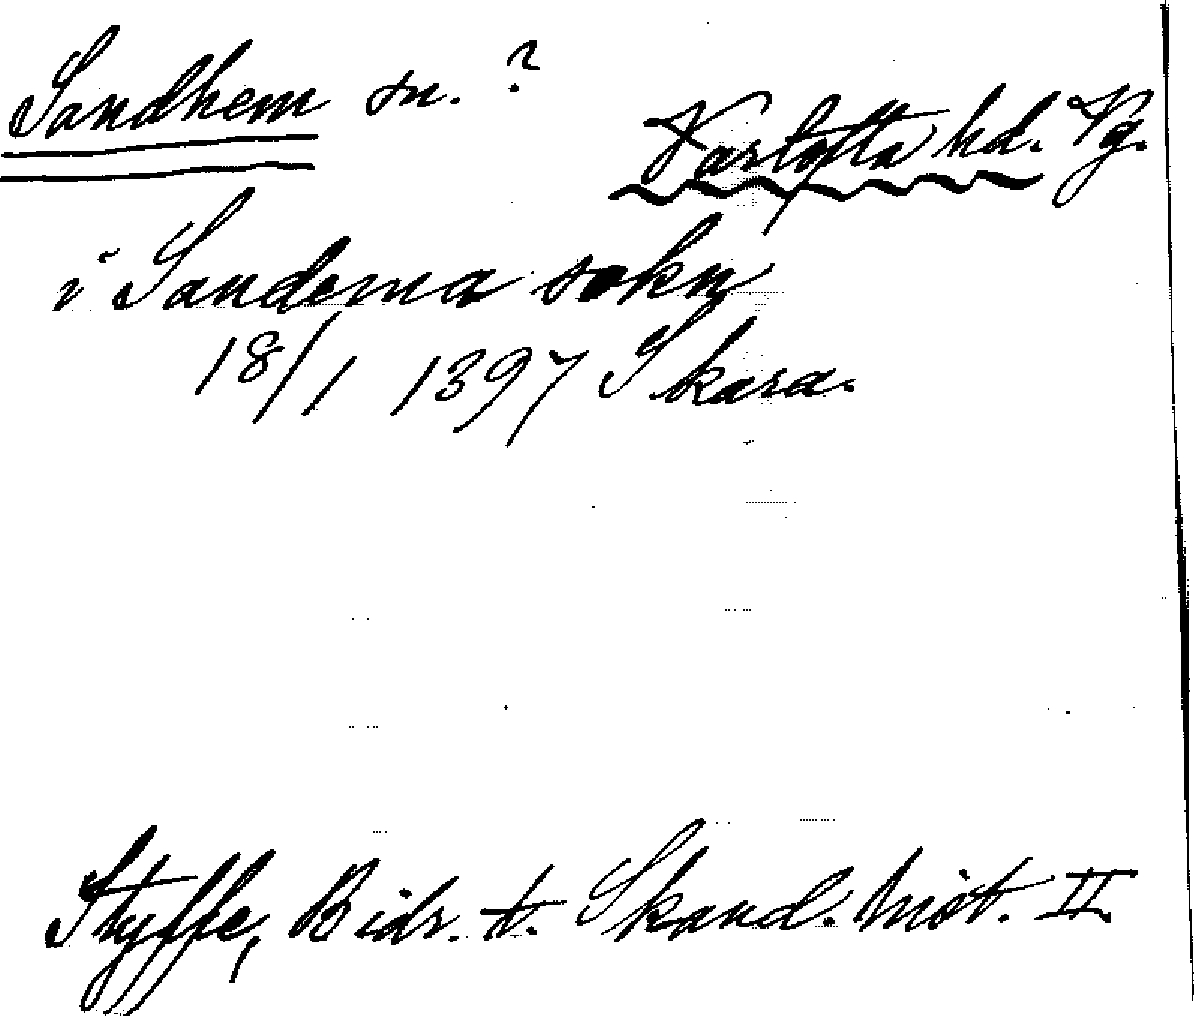 Sandhem sn. ?
Vartofta hd. Vg.
i Sandema sokn
18/1 1397 Skara.
Styffe, Bidr. t. Skand. hist. II.